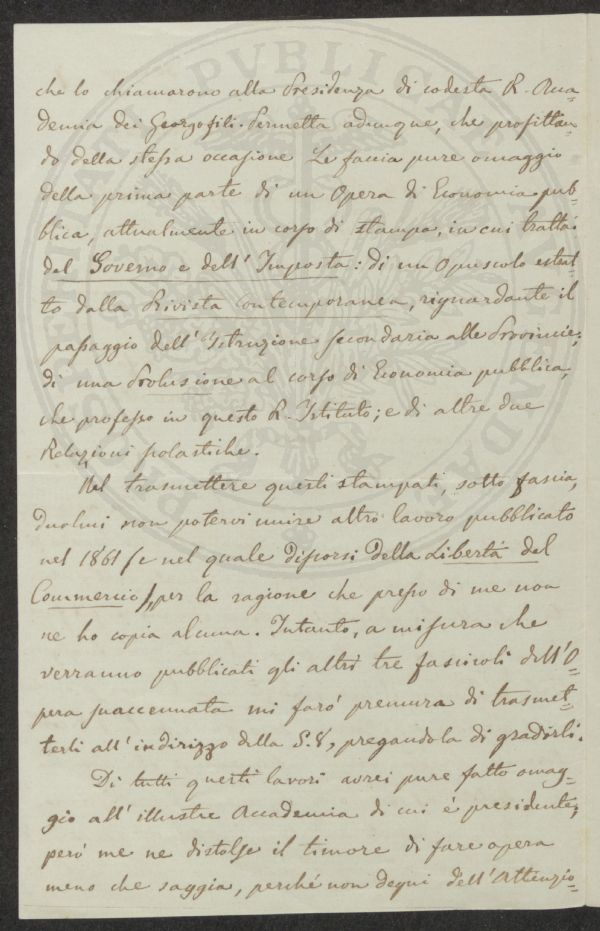 che lo chiamarono alla Presidenza di codesta R. Acca=
demia dei Georgofili. Permetta adunque, che profittan=
do della stessa occasione Le faccia pure omaggio
della prima parte di un Opera di Economia pub=
blica, attualmente in corso di stampa, in cui trattai
del Governo e dell' Imposta: di un Opuscolo estrat=
to dalla Rivista contemporanea, riguardante il
passaggio dell' Istruzione secondaria alle Provincie;
di una Prolusione al corso di Economia pubblica,
che professo in questo R. Istituto; e di altre due
Relazioni scolastiche.
Nel trasmettere questi stampati, sotto fascia,
duolmi non potervi unire altro lavoro pubblicato
nel 1861 (e nel quale discorsi della Libertà del
Commercio), per la ragione che presso di me non
ne ho copia alcuna. Intanto, a misura che
verranno pubblicati gli altri tre fascicoli dell' O=
pera suaccennata mi farò premura di trasmet=
terli all' indirizzo della S.V, pregandola di gradirli.
Di tutti questi lavori avrei pure fatto omag=
gio all' illustre Accademia di cui è presidente;
però me ne distolse il timore di fare opera
meno che saggia, perché non degni dell' Attenzio=
PUBLICAE